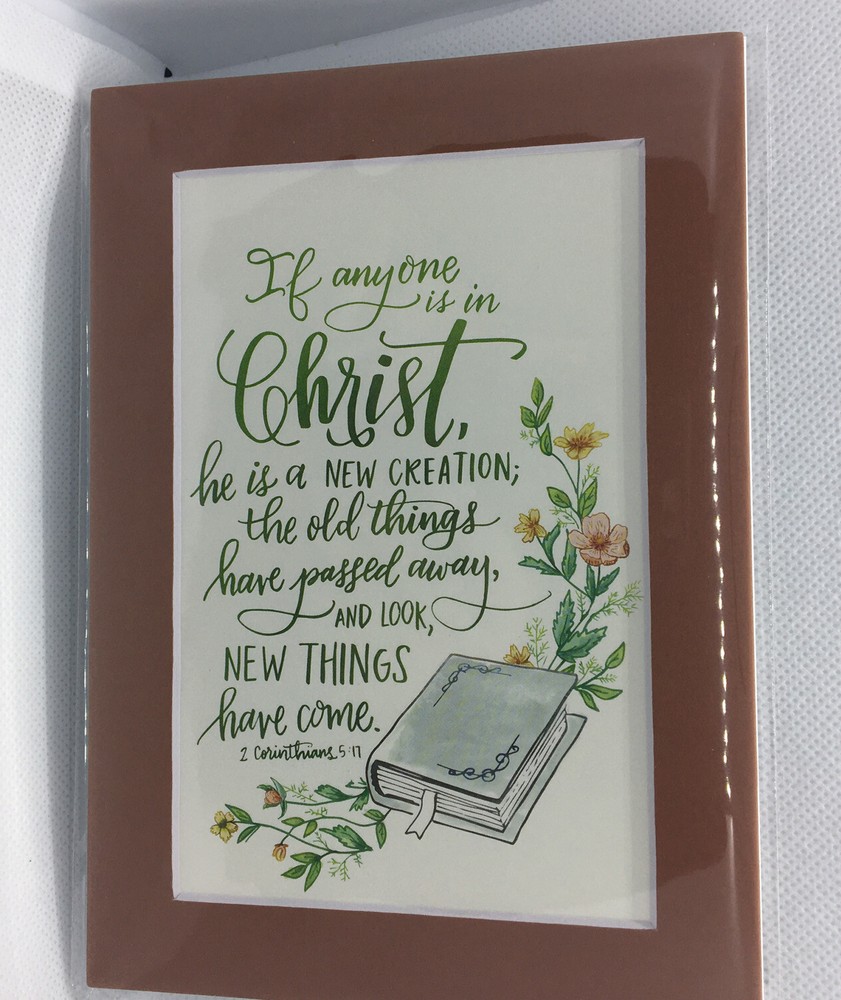 If anyone
is in
Christ,
he is a NEW CREATION;
the old things
have passed away,
AND LOOK,
NEW THINGS
have come.
2 Corinthians 5:17